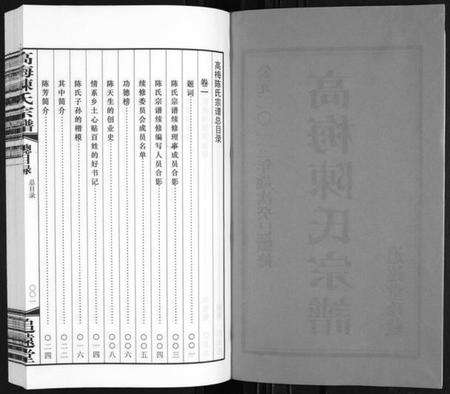 高梅陳氏宗譜
高梅陈氏宗谱总目录
卷一
题词……〇〇一
陈氏宗谱续修理事成员合影……〇〇三
陈氏宗谱续修编写人员合影……〇〇四
续修委员会成员名单……〇〇五
功德榜……〇〇六
陈天生的创业史……〇〇八
情系乡土心贴百姓的好书记……〇一四
陈氏子孙的楷模……〇一六
其中简介……〇二二
陈芳简介……〇二四
高梅陳氏宗譜
總目录
总目录
〇〇一
追遠堂